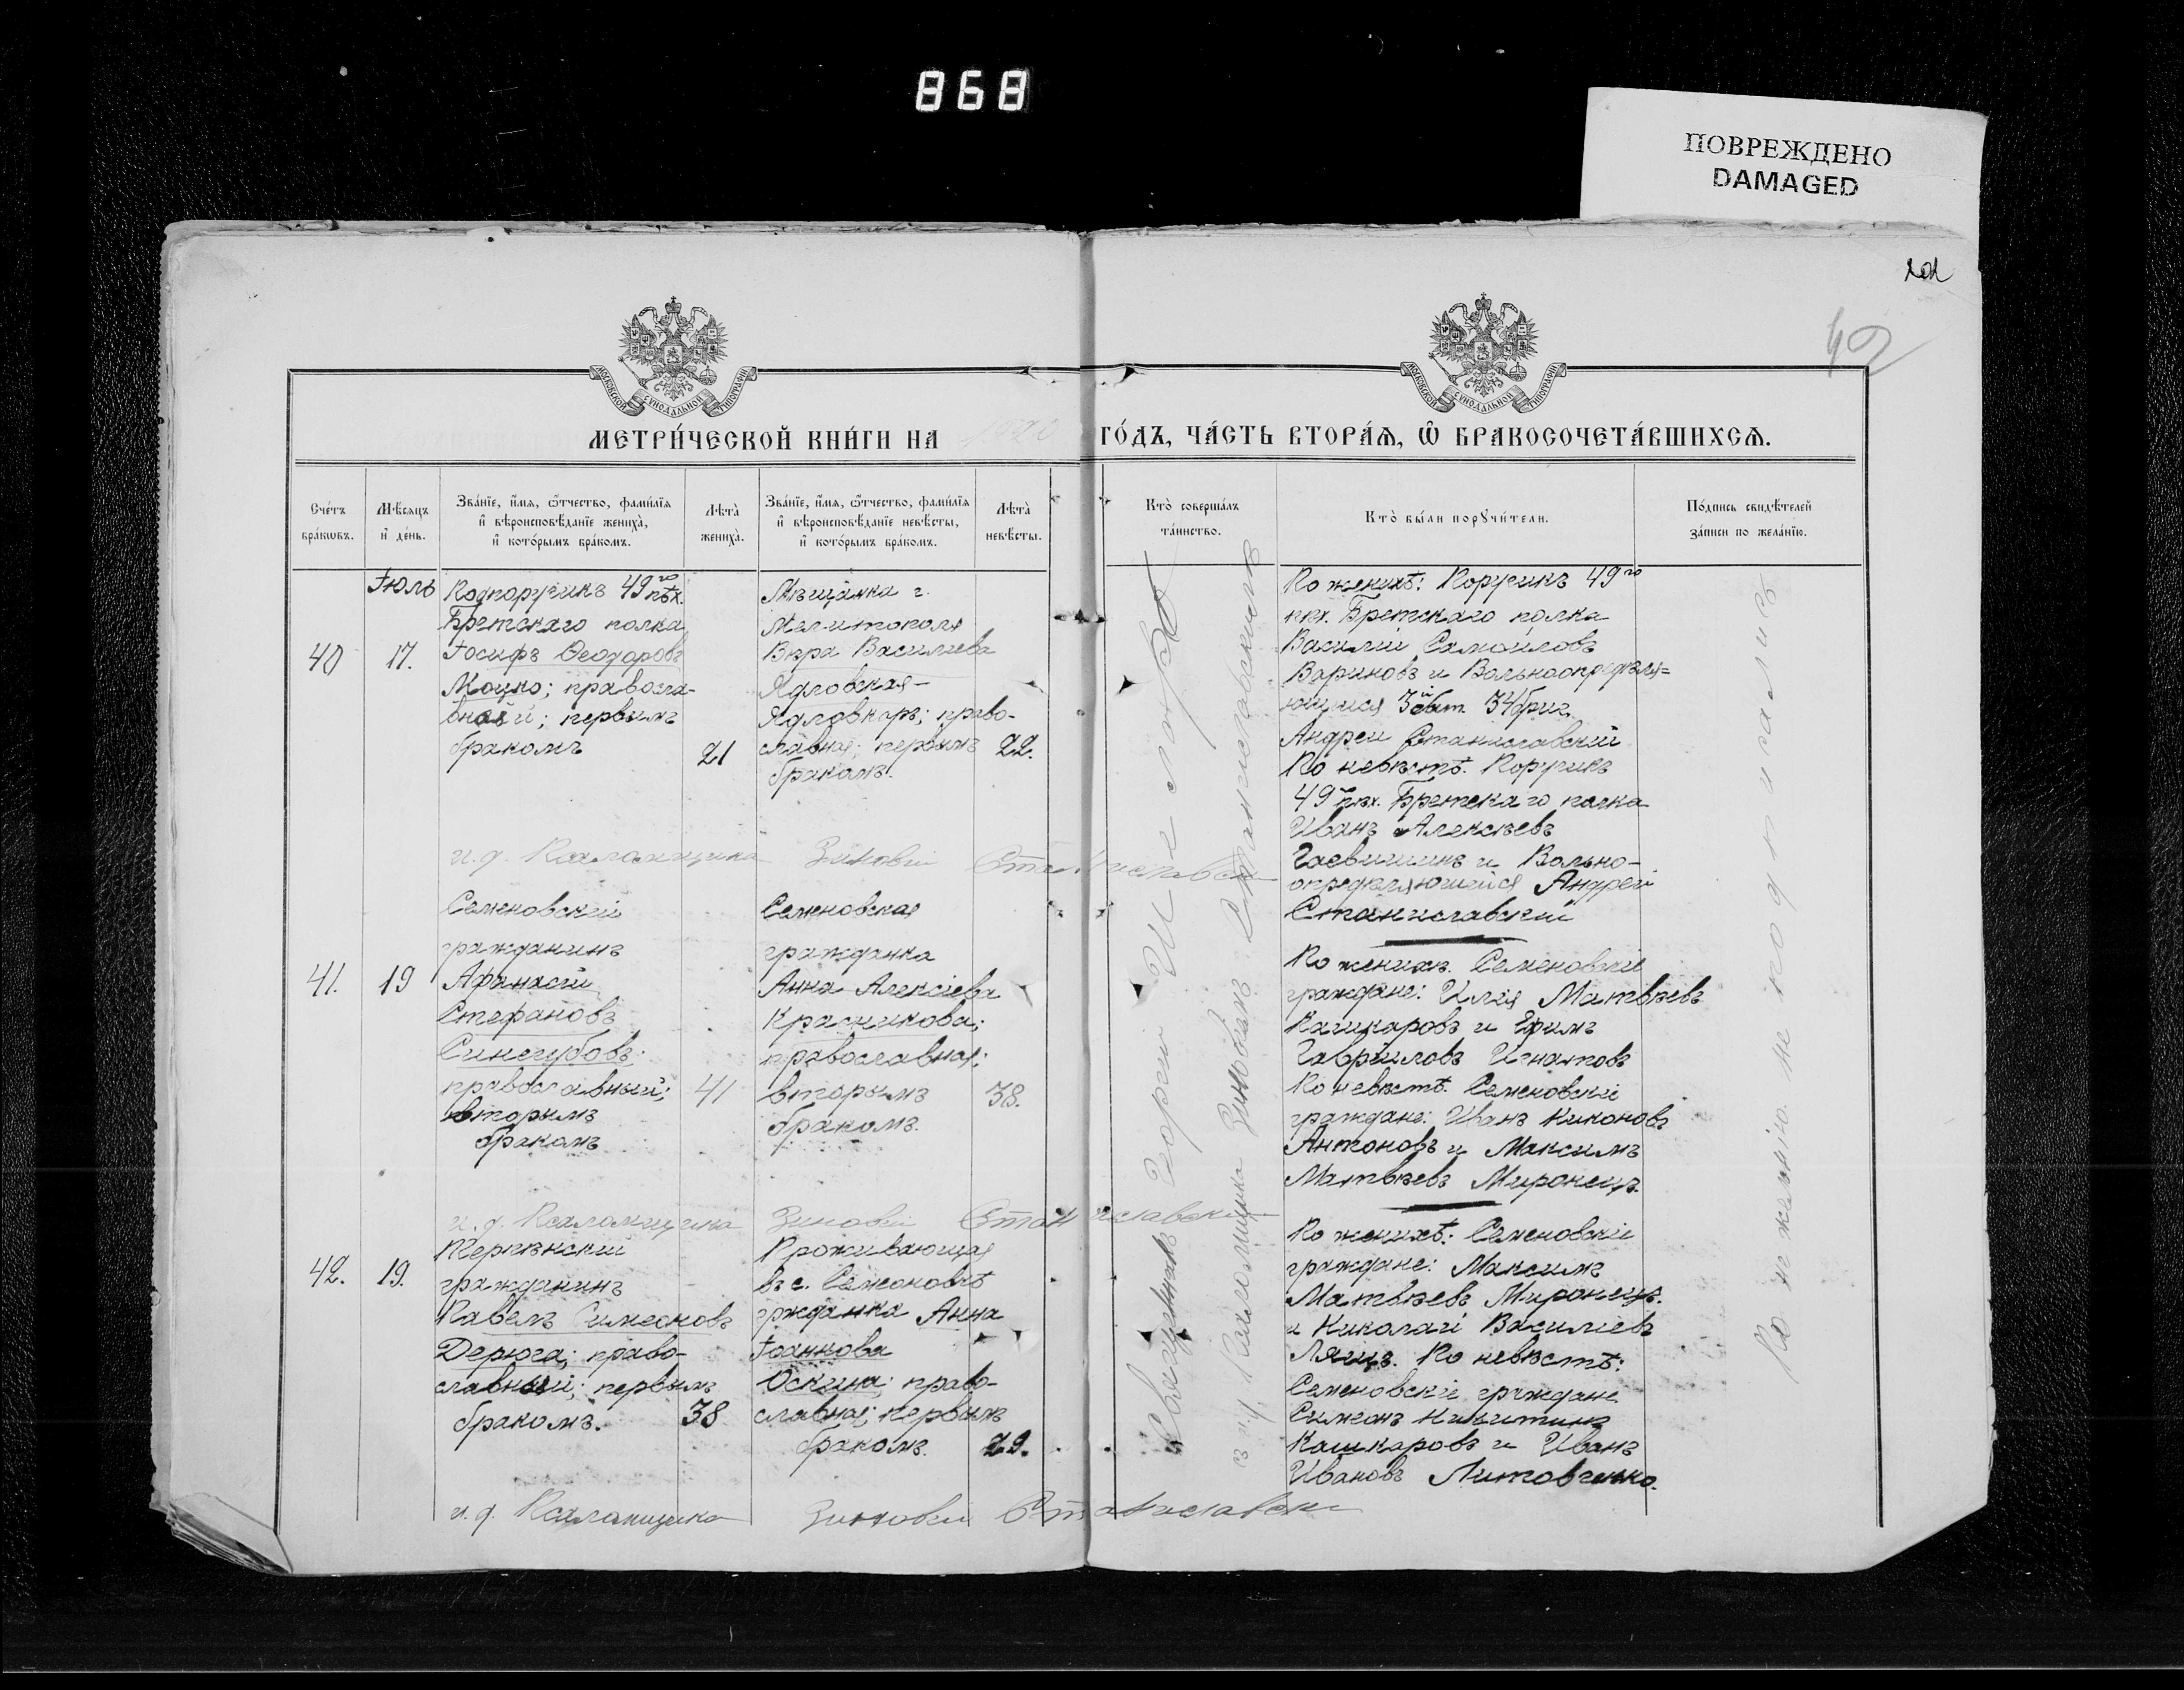 868
ПОВРЕЖДЕНО
DAMAGED
101
49
МОСКОВСКОЙ СѴНОДАЛЬНОЙ ТИПОГРАФІИ
МОСКОВСКОЙ СѴНОДАЛЬНОЙ ТИПОГРАФІИ
МЕТРИ́ЧЕСКОЙ КНИ́ГИ НА 1920 ГО́ДЪ, ЧА́СТЬ ВТОРА́Ѧ, Ѽ БРАКОСОЧЕТА́ВШИХСѦ.
Сче́тъ
бра́кѡвъ.
Мѣ́сяцъ
и҆ де́нь.
Зва́нїе, и҆́мѧ, ѻ҆́тчество, фами́лїѧ
и҆ вѣроисповѣ́данїе жениха̀,
и҆ кото́рымъ бра́комъ.
Лѣта̀
жениха̀.
Зва́нїе, и҆́мѧ, ѻ҆́тчество, фами́лїѧ
и҆ вѣроисповѣ́данїе невѣ́сты,
и҆ кото́рымъ бра́комъ.
Лѣта̀
невѣ́сты.
Кто̀ соверша́лъ
та́инство.
Кто̀ бы́ли порꙋчи́тели.
По́дпись свидѣ́телей
за́писи по жела́нїю.
Іюль
40
17.
Подпоручикъ 49го пѣх.
Брестскаго полка
Іосифъ Ѳеодоровъ
Моцко; правосла-
вный; первымъ
бракомъ
21
Мѣщанка г.
Мелитополя
Вѣра Василіева
Ядловская-
Ядловкеръ; право-
славная; первымъ
бракомъ.
22.
Ко женихѣ: Поручикъ 49го
пѣх. Брестскаго полка
Василій Самойловъ
Вариновъ и Вольноопредѣля=
ющійся 3й бат. 34 бриг.
Андрей Станиславскій
По невѣстѣ. Поручикъ
49го пѣх. Брестскаго полка
Иванъ Алексѣевъ
и Вольно-
опредѣляющійся Андрей
Станиславскій
и. д. Псаломщика Зиновій Станиславскі
41.
19
Семеновскій
гражданинъ
Афанасій
Стефановъ
Синегубовъ;
православный;
вторымъ
бракомъ
41
Семеновская
гражданка
Анна Алексіева
Красникова;
православная;
вторымъ
бракомъ.
38.
По женихѣ. Семеновскіе
граждане: Илія Матвѣевъ
Кашкаровъ и Ефимъ
Гавріиловъ Игнатовъ
По невѣстѣ. Семеновскіе
граждане: Иванъ Никоновъ
Антоновъ и Максимъ
Матвѣевъ Миронецъ.
и. д. Псаломщика Зиновій Станиславскі
42.
19.
гражданинъ
Павелъ Симеоновъ
Дерюга; право-
славный; первымъ
бракомъ.
38
Проживающая
въ с. Семеновкѣ
гржданка Анна
Іоаннова
Оскина; право-
славная; первымъ
бракомъ.
29.
По женихѣ: Семеновскіе
граждане: Максимъ
Матвѣевъ Миронецъ.
и Николай Василіевъ
Ляшъ. По невѣстѣ:
Семеновскіе граждане
Симеонъ Никитинъ
Кашкаровъ и Иванъ
Ивановъ Литовченко.
и. д. Псаломщика Зиновій Станиславскі
Священникъ Георгій
з и. д. Псаломщика Зиновіемъ Станиславскимъ
По нежеланію не подписались